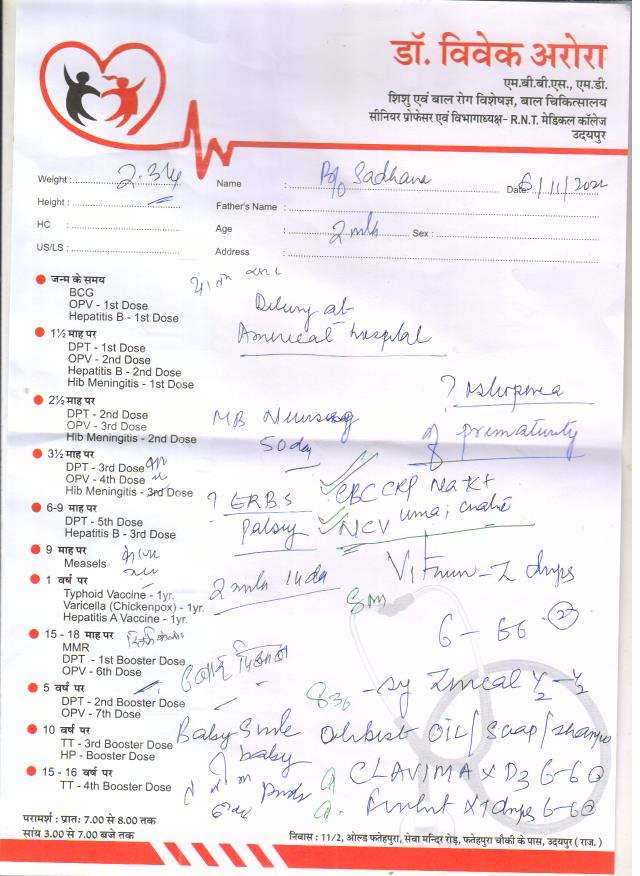 डॉ. विवेक अरोरा
एम.बी.बी.एस., एम.डी.
शिशु एवं बाल रोग विशेषज्ञ, बाल चिकित्सालय
सीनियर प्रोफेसर एवं विभागाध्यक्ष- R.N.T. मेडिकल कॉलेज
उदयपुर
Weight :
Height :
HC :
US/LS :
Name : B/o Sadhana Date: 6/11/2022
Father's Name :
Age : 2 mth Sex :
Address :
जन्म के समय
BCG
OPV - 1st Dose
Hepatitis B - 1st Dose
Delivery at
American hospital
1½ माह पर
DPT - 1st Dose
OPV - 2nd Dose
Hepatitis B - 2nd Dose
Hib Meningitis - 1st Dose
2½ माह पर
DPT - 2nd Dose
OPV - 3rd Dose
Hib Meningitis - 2nd Dose
MB Nursing
50 day
?
of prematurity
3½ माह पर
DPT - 3rd Dose
OPV - 4th Dose
Hib Meningitis - 3rd Dose
? ERBS
Palsy
CBC CRP Na+K+
NCV
6-9 माह पर
DPT - 5th Dose
Hepatitis B - 3rd Dose
9 माह पर
Measels
1 वर्ष पर
Typhoid Vaccine - 1yr.
Varicella (Chickenpox) - 1yr.
Hepatitis A Vaccine - 1yr.
2 mth 14 da
Vitamin-Z drops
6 - 66
15 - 18 माह पर
MMR
DPT - 1st Booster Dose
OPV - 6th Dose
5 वर्ष पर
DPT - 2nd Booster Dose
OPV - 7th Dose
sy Zincal ½ - ½
10 वर्ष पर
TT - 3rd Booster Dose
HP - Booster Dose
Baby Smile
baby
OIL/Soap/Shampoo
15 - 16 वर्ष पर
TT - 4th Booster Dose
CLAVIMAX D3 6-60
drops 6-60
परामर्श : प्रात: 7.00 से 8.00 तक
सांय 3.00 से 7.00 बजे तक
निवास : 11/2, ओल्ड फतेहपुरा, सेवा मन्दिर रोड़, फतेहपुरा चौकी के पास, उदयपुर ( राज. )